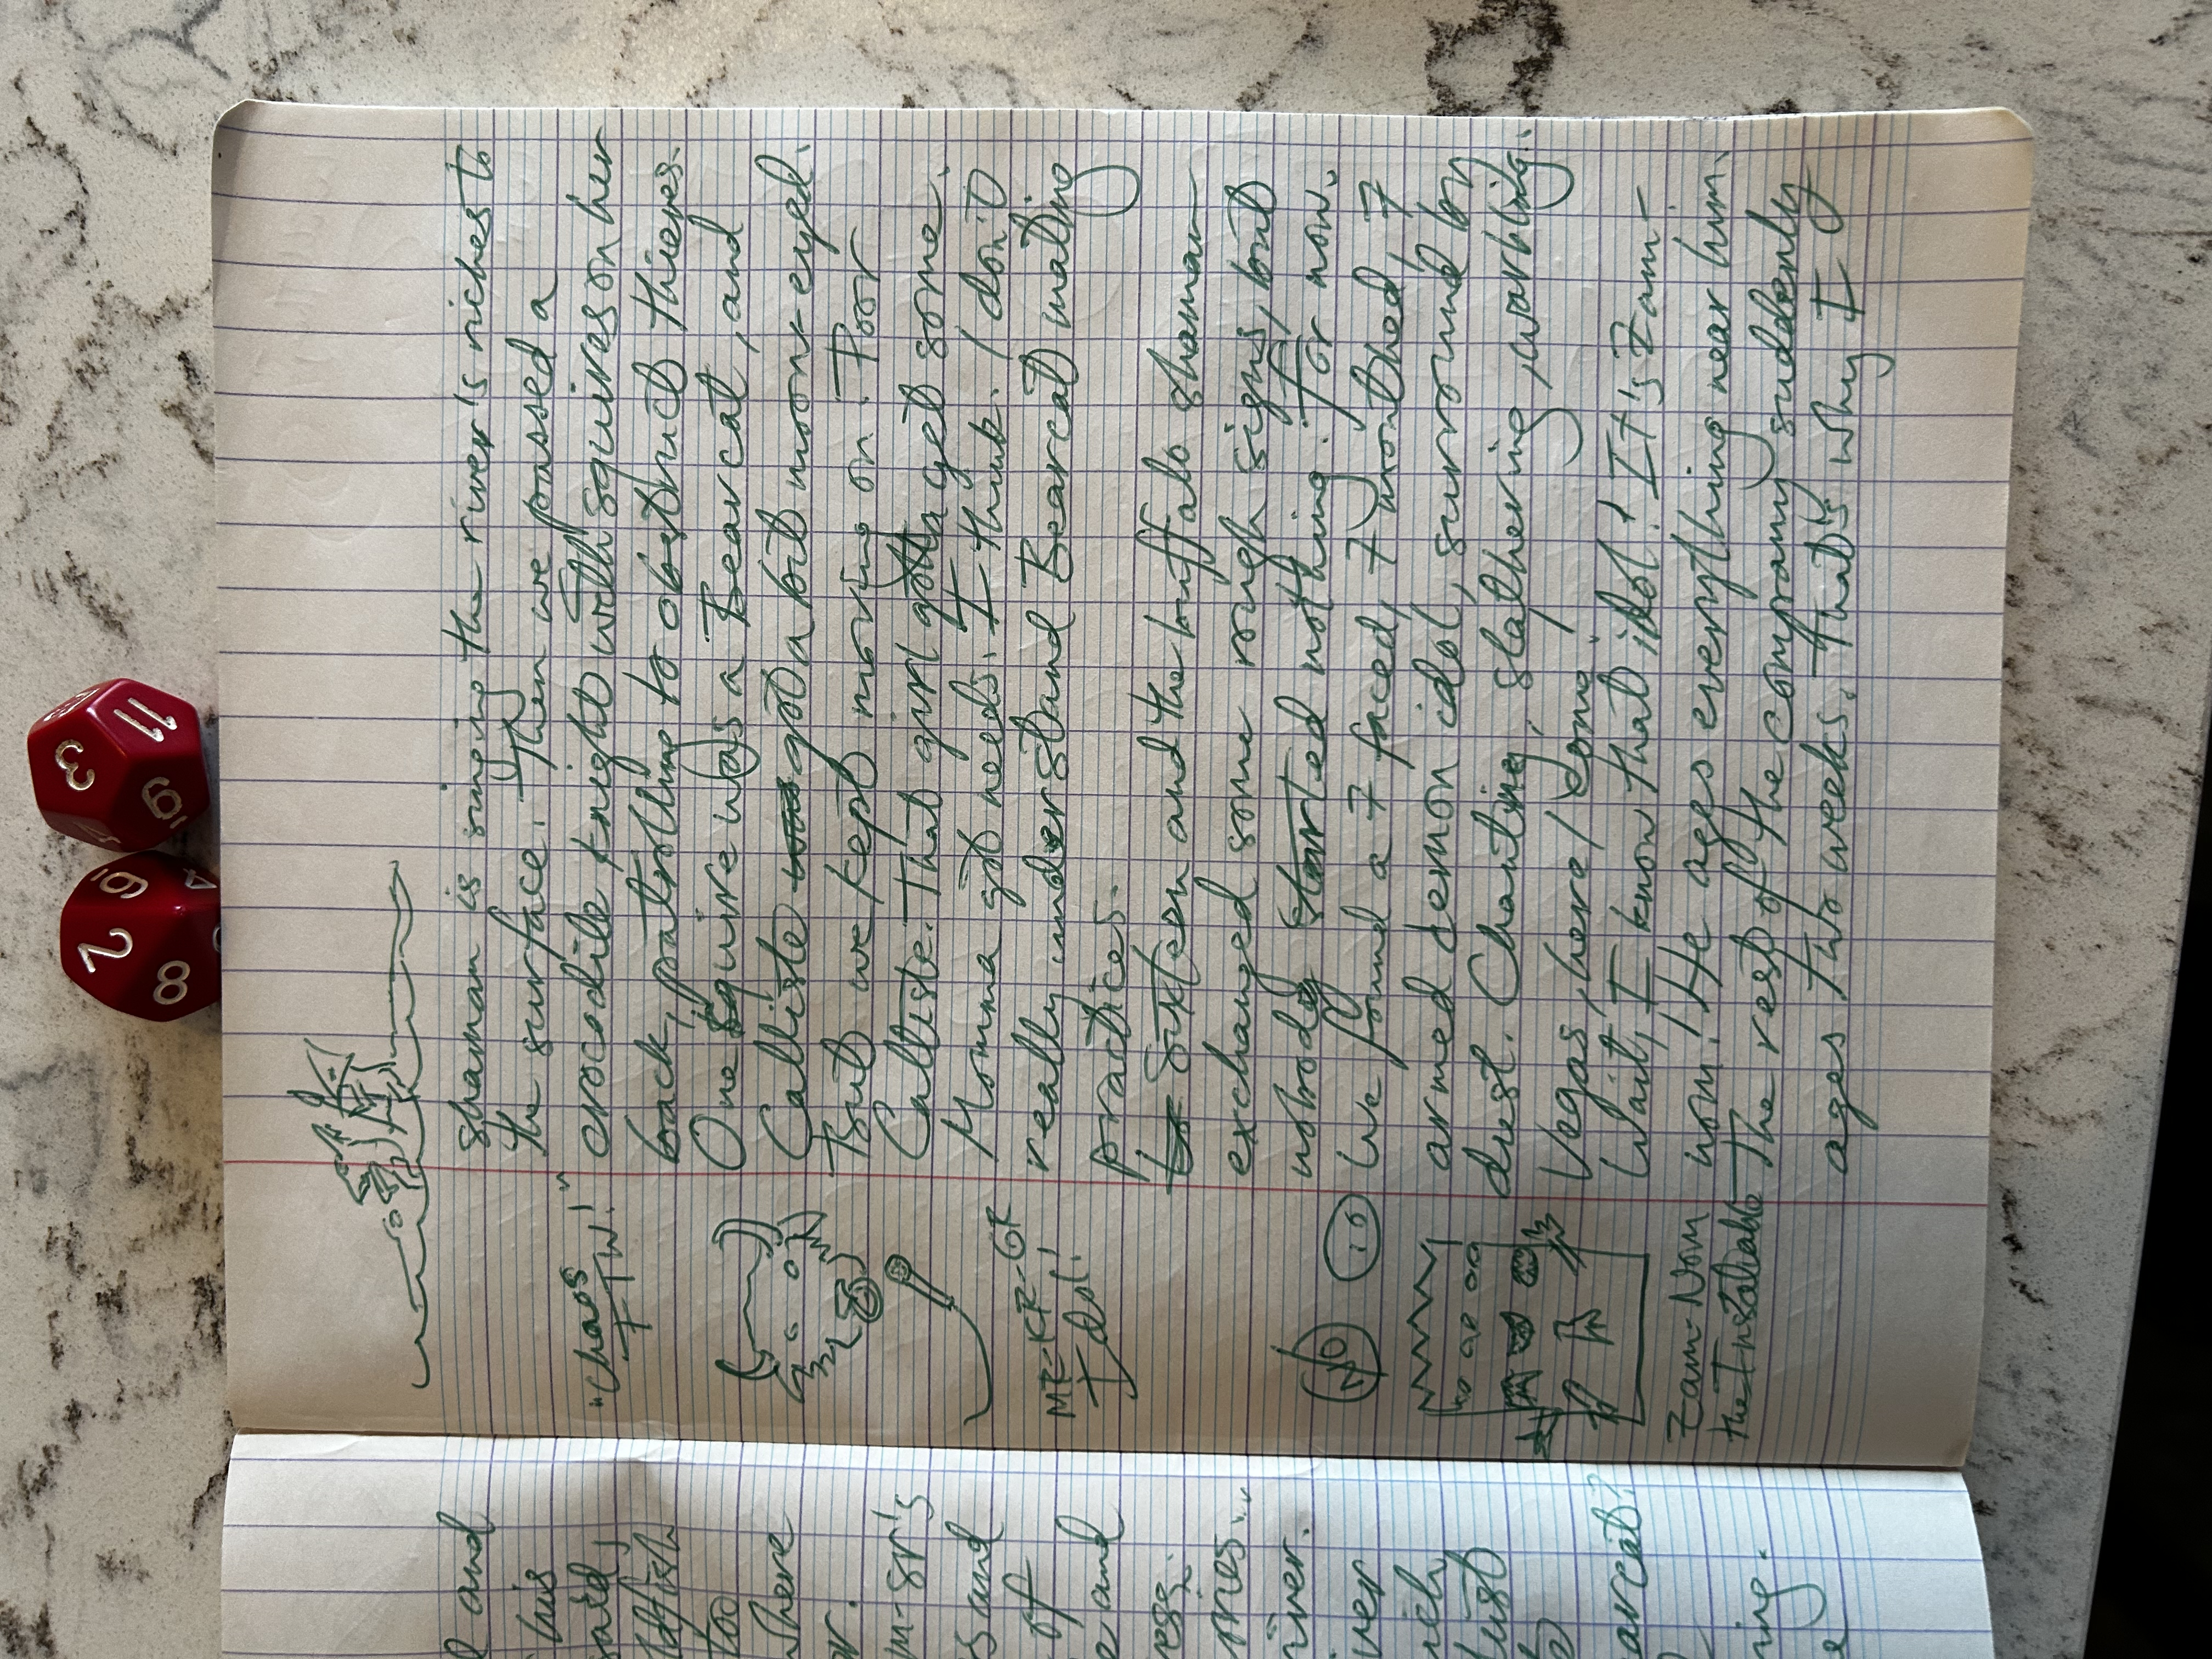 shaman is singing the river's riches to
the surface. Then we passed a
crocodile knight with squires on her
back, patrolling to obstruct thieves.
One squire was a Bearcat, and
Calliste got a bit moon-eyed.
But we kept moving on. Poor
Calliste. That girl gotta get some.
Momma got needs. I think. I don't
really understand Bearcat mating
practices.
Sixteen and the buffalo shaman
exchanged some rough signs, but
nobody started nothing. For now.
We found a 7 faced, 7 mouthed, 7
armed demon idol, surround by
dust. Chanting, slathering, warbling.
Vegas, here / Long.
Wait, I know that idol! It's Zam-
nom! He ages everything near him.
The rest of the company suddenly
ages two weeks. That's why I
"Chaos
FTW!"
ME-KR-GR
Idol!
NO
Zam-Nom
the Insatiable
l and
his
said,
too
where
or.
m-sr's
s and
of
e and
ess.
mes."
iver.
ver
lust
earcat?
ning.
e
11
3
19
2
8
6
4